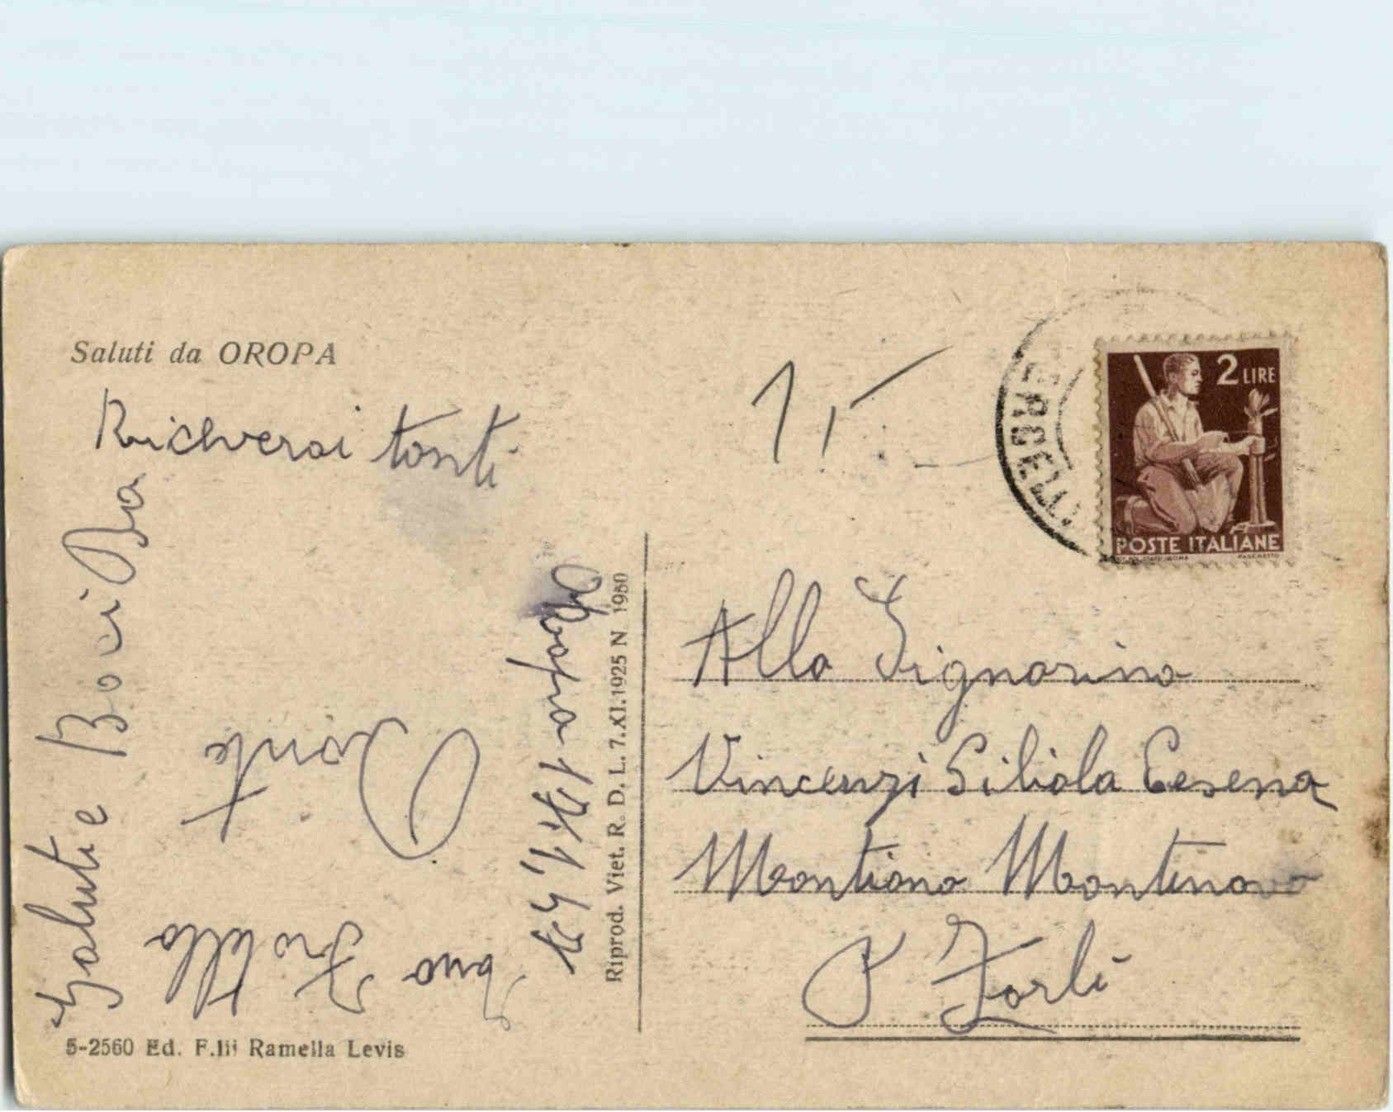 Saluti da OROPA
Riceverai tanti
Saluti e Baci Da
tuo Fratello
Dante
Oropa 17.1.47
Riprod. Viet. R. D. L. 7.XI.1925 N 1980
5-2560 Ed. F.lli Ramella Levis
2 LIRE
POSTE ITALIANE
Alla Signorina
Vincenzi Giliola Cesena
Montiano Montenovo
P Forlì